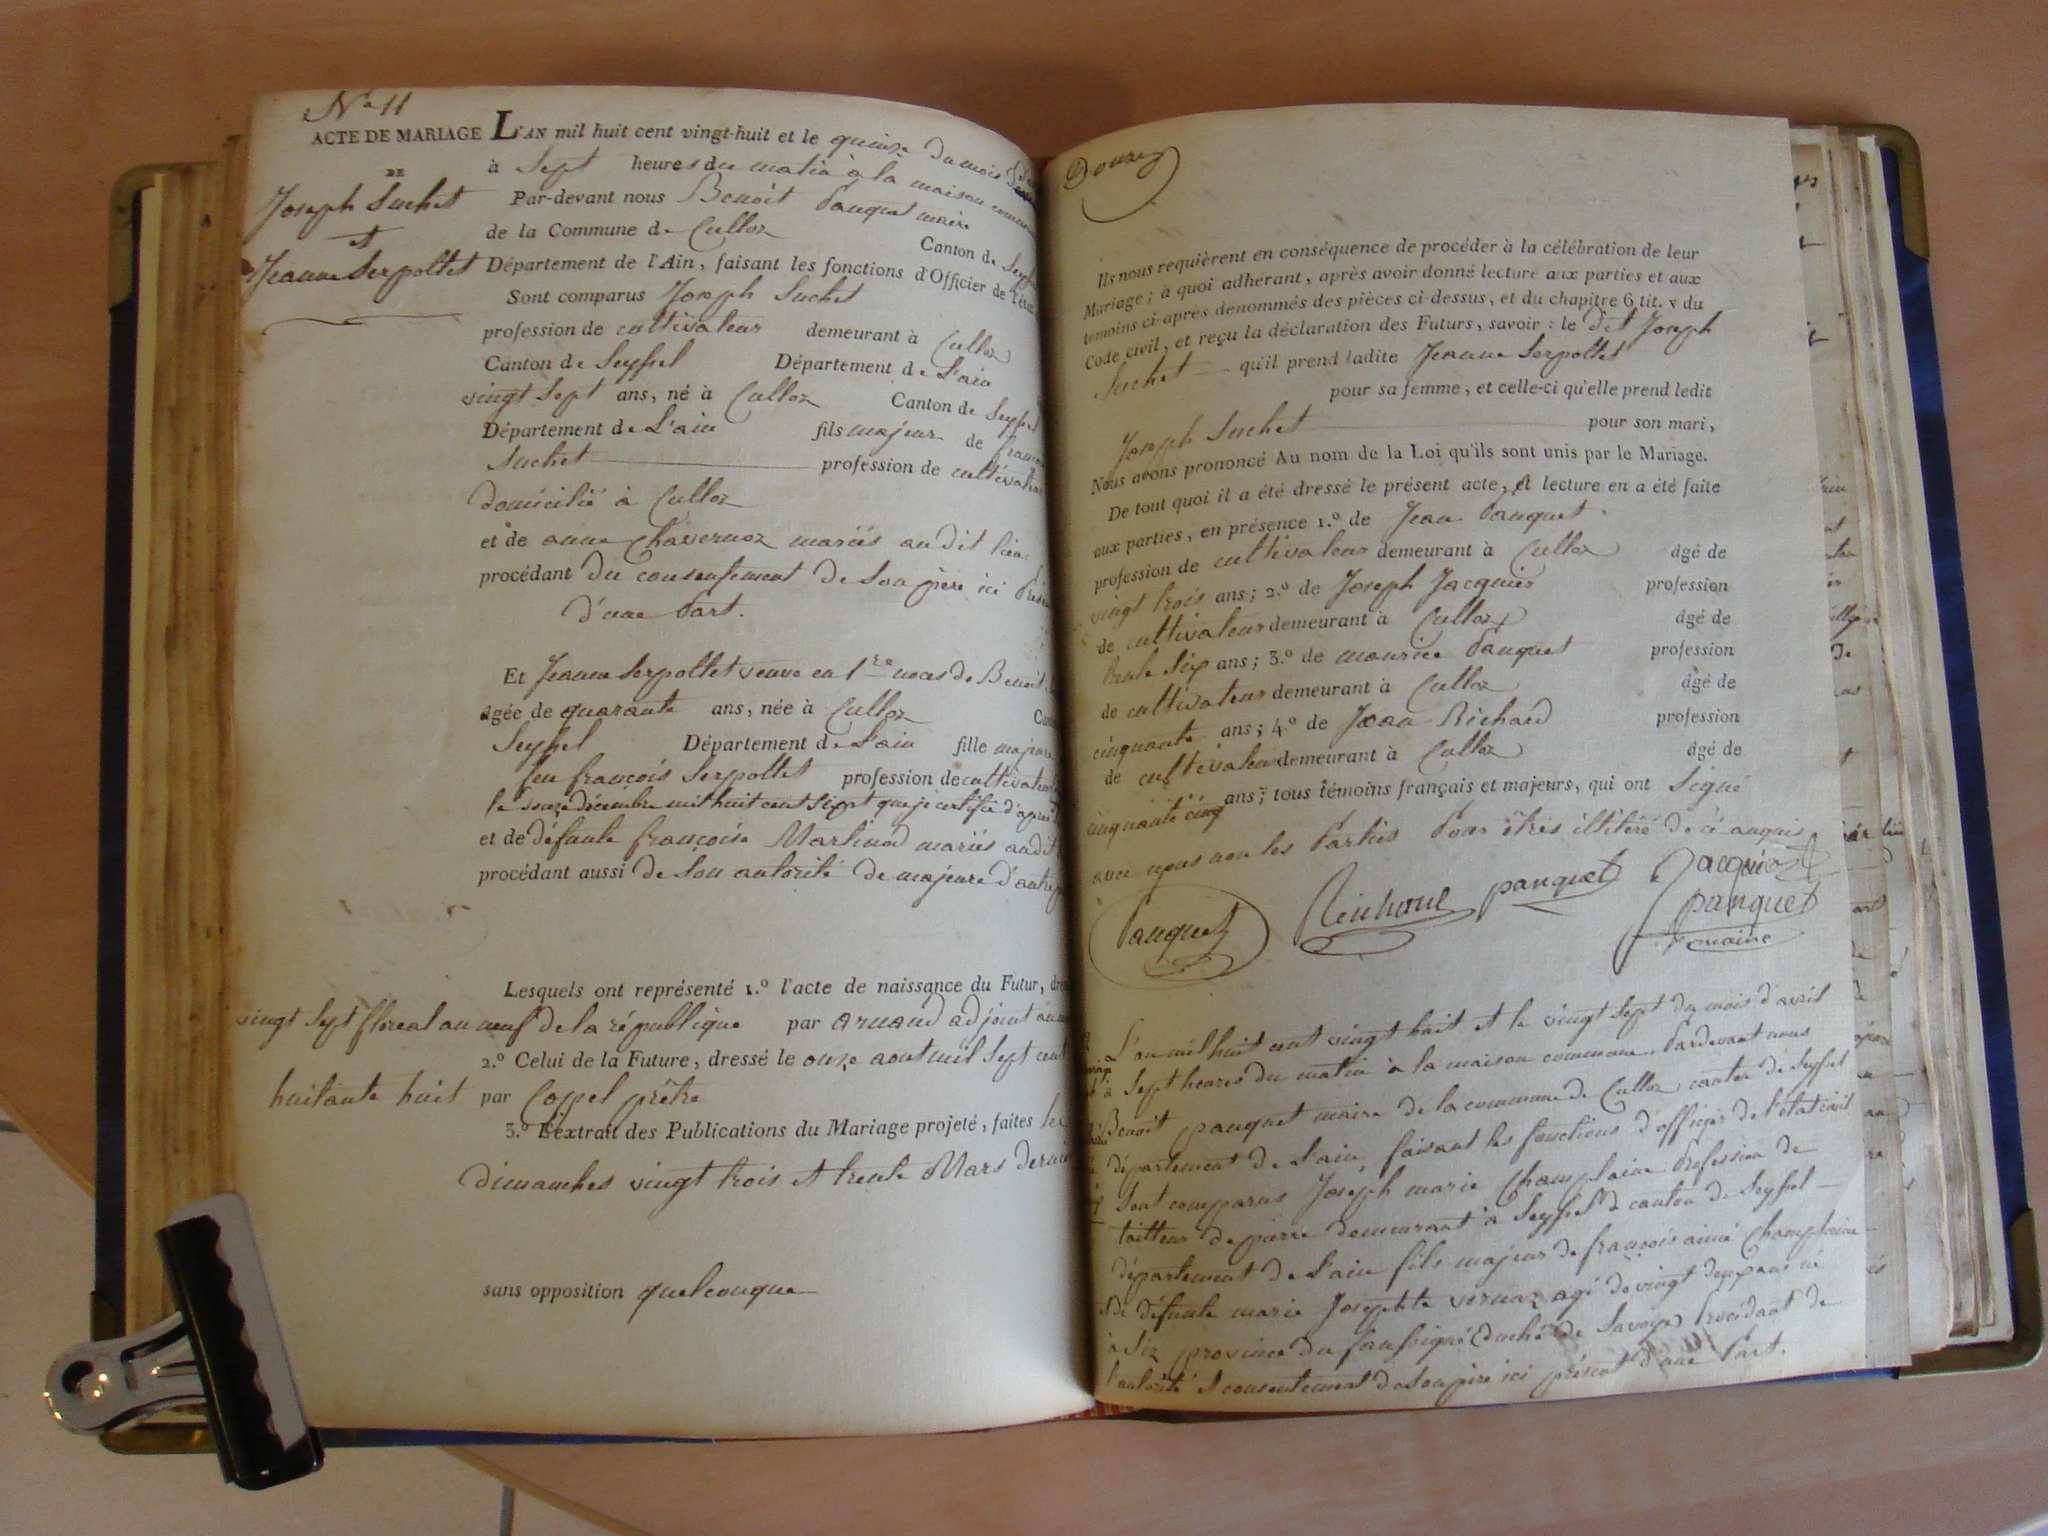 N.° 11
ACTE DE MARIAGE
DE
Joseph Suchet
et
Jeanne Serpollet
L'AN mil huit cent vingt-huit et le quinze du mois
à Sept heures du matin à la maison commune
Par-devant nous Benoit Panquet maire
de la Commune de Culloz Canton de Seyssel
Département de l'Ain, faisant les fonctions d'Officier de l'état
Sont comparus Joseph Suchet
profession de cultivateur demeurant à Culloz
Canton de Seyssel Département de L'ain
vingt Sept ans, né à Culloz Canton de Seyssel
Département de L'ain fils majeur de françois
Suchet profession de cultivateur
domicilié à Culloz
et de anne Chavernoz mariés audit lieu
procédant du consentement de Son père ici
d'une Part.
Et Jeanne Serpollet veuve en 1re noces de Benoit
agée de quarante ans, née à Culloz
Seyssel Département de L'ain fille majeure
feu françois Serpollet profession de cultivateur
le douze décembre mil huit cent Sept que je certifie d'après
et de défunte françoise Martinod mariés audit
procédant aussi de Son autorité de majeure d'autre
Lesquels ont représenté 1.° l'acte de naissance du Futur,
vingt Sept floreal an neuf de la république par arnaud adjoint
2.° Celui de la Future, dressé le onze aout mil Sept cent
huitante huit par Coppel prêtre
3.° L'extrait des Publications du Mariage projeté, faites les
dimanches vingt trois et trente Mars dernier
sans opposition quelconque
Douze
Ils nous requièrent en conséquence de procéder à la célébration de leur
Mariage; à quoi adhérant, après avoir donné lecture aux parties et aux
témoins ci-après dénommés des pièces ci-dessus, et du chapitre 6 tit. v du
Code civil, et reçu la déclaration des Futurs, savoir : le dit Joseph
Suchet qu'il prend ladite Jeanne Serpollet
pour sa femme, et celle-ci qu'elle prend ledit
Joseph Suchet pour son mari,
Nous avons prononcé Au nom de la Loi qu'ils sont unis par le Mariage.
De tout quoi il a été dressé le présent acte, et lecture en a été faite
aux parties, en présence 1.° de Jean Panquet
profession de cultivateur demeurant à Culloz âgé de
vingt trois ans; 2.° de Joseph Jacquier profession
de cultivateur demeurant à Culloz âgé de
trente Six ans; 3.° de maurice Panquet profession
de cultivateur demeurant à Culloz âgé de
cinquante ans; 4.° de Jean Richard profession
de cultivateur demeurant à Culloz âgé de
cinquante cinq ans; tous témoins français et majeurs, qui ont Signé
avec nous non les Parties Pour êtres illitéré de ce anquis
Panquet panquet Jacquier
panquet
maire
L'an mil huit cent vingt huit et le vingt Sept du mois d'avril
à Sept heures du matin à la maison commune. Pardevant nous
Benoit panquet maire de la commune de Culloz canton de Seyssel
département de L'ain, faisant les fonctions d'officier de l'état civil
Sont comparus Joseph marie Champlaine Profession de
tailleur de pierre demeurant à Seyssel canton de Seyssel
département de L'ain fils majeur de françois aimé Champlaine
et de défunte marie Josephte vernaz agé de vingt deux ans né
à Siz province du faussigné (duché de Savoye) Procédant de
l'autorité et consentement de Son père ici présent d'une Part.